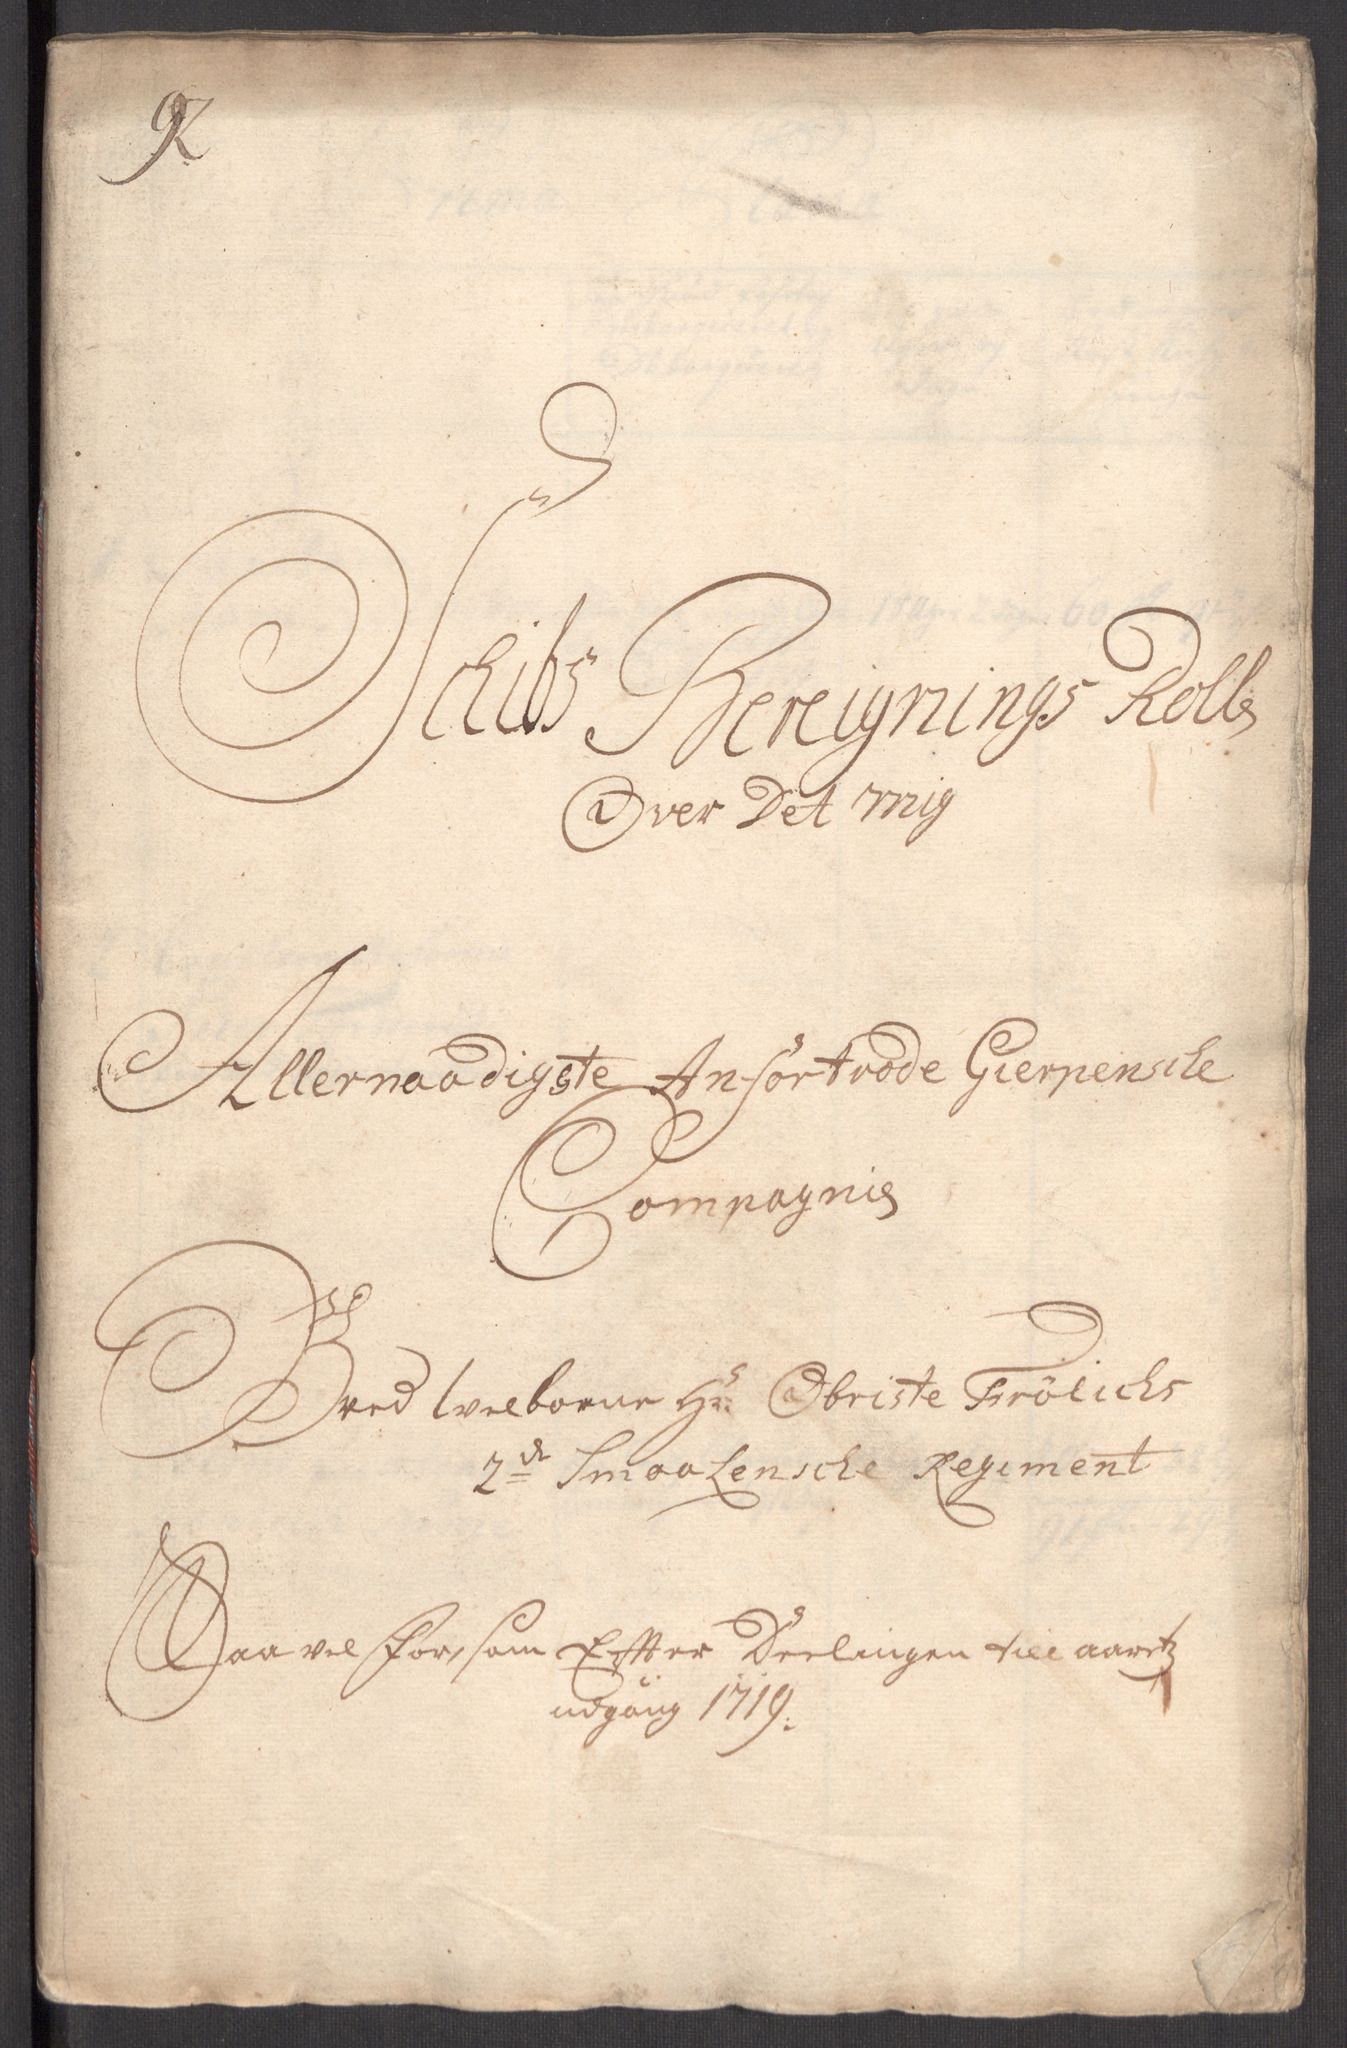 K
Schibs Bereignings Rolle
Over Det mig
Allernaadigste Anförtrode Gierpensche
Compagnie
Ved welborne Hr: Obriste Frölichs
2de Smaalensche Regiment
Saavel for, som Effter Deelingen till aaretz
udgang 1719.